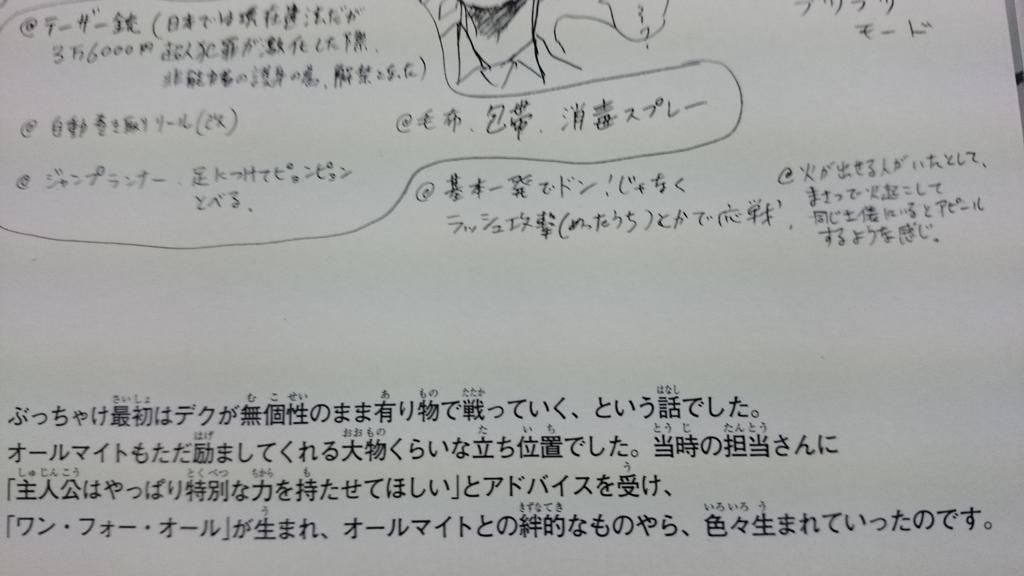 @テーザー銃(日本では現在違法だが
3万6000円 超人犯罪が激化した際、
非能力者の護身の為、解禁となった)
ブツブツ
モード
@自動巻き取りリール(改)
@毛布、包帯、消毒スプレー
@ジャンプランナー、足につけてピョンピョン
とべる。
@基本一発でドン!じゃなく
ラッシュ攻撃(めったうち)とかで応戦、
@火が出せる人がいたとして、
まさつで火起こして
同じ土俵にいるとアピール
するような感じ。
ぶっちゃけ最初はデクが無個性のまま有り物で戦っていく、という話でした。
オールマイトもただ励ましてくれる大物くらいな立ち位置でした。当時の担当さんに
「主人公はやっぱり特別な力を持たせてほしい」とアドバイスを受け、
「ワン・フォー・オール」が生まれ、オールマイトとの絆的なものやら、色々生まれていったのです。